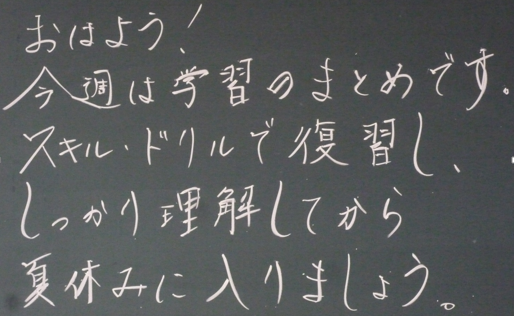 おはよう!
今週は学習のまとめです。
スキル・ドリルで復習し、
しっかり理解してから
夏休みに入りましょう。